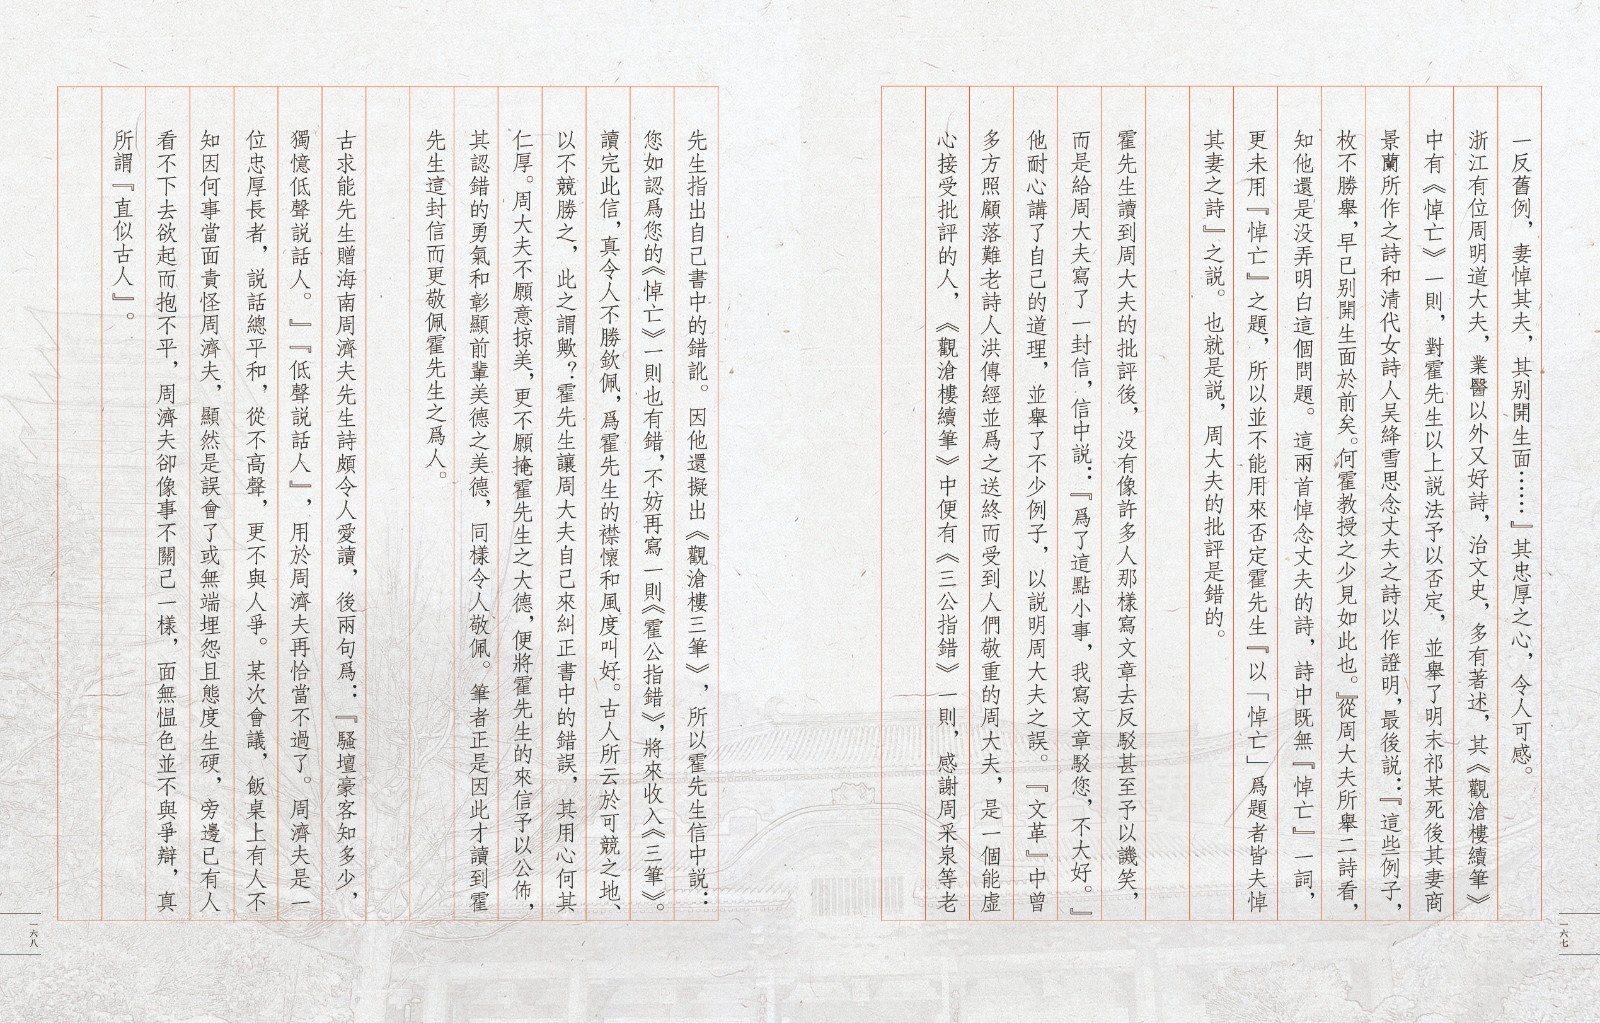 一反舊例，妻悼其夫，其別開生面……』其忠厚之心，令人可感。
浙江有位周明道大夫，業醫以外又好詩，治文史，多有著述，其《觀滄樓續筆》
中有《悼亡》一則，對霍先生以上説法予以否定，並舉了明末祁某死後其妻商
景蘭所作之詩和清代女詩人吴絳雪思念丈夫之詩以作證明，最後説：『這些例子，
枚不勝舉，早已别開生面於前矣。何霍教授之少見如此也。』從周大夫所舉二詩看，
知他還是没弄明白這個問題。這兩首悼念丈夫的詩，詩中既無『悼亡』一詞，
更未用『悼亡』之題，所以並不能用來否定霍先生『以「悼亡」爲題者皆夫悼
其妻之詩』之説。也就是説，周大夫的批評是錯的。
霍先生讀到周大夫的批評後，没有像許多人那樣寫文章去反駁甚至予以譏笑，
而是給周大夫寫了一封信，信中説：『爲了這點小事，我寫文章駁您，不大好。』
他耐心講了自己的道理，並舉了不少例子，以説明周大夫之誤。『文革』中曾
多方照顧落難老詩人洪傳經並爲之送終而受到人們敬重的周大夫，是一個能虚
心接受批評的人，《觀滄樓續筆》中便有《三公指錯》一則，感謝周采泉等老
一六七
先生指出自己書中的錯訛。因他還擬出《觀滄樓三筆》，所以霍先生信中説：
您如認爲您的《悼亡》一則也有錯，不妨再寫一則《霍公指錯》，將來收入《三筆》。
讀完此信，真令人不勝欽佩，爲霍先生的襟懷和風度叫好。古人所云於可競之地、
以不競勝之，此之謂歟？霍先生讓周大夫自己來糾正書中的錯誤，其用心何其
仁厚。周大夫不願意掠美，更不願掩霍先生之大德，便將霍先生的來信予以公佈，
其認錯的勇氣和彰顯前輩美德之美德，同樣令人敬佩。筆者正是因此才讀到霍
先生這封信而更敬佩霍先生之爲人。
古求能先生贈海南周濟夫先生詩頗令人愛讀，後兩句爲：『騷壇豪客知多少，
獨憶低聲説話人。』『低聲説話人』，用於周濟夫再恰當不過了。周濟夫是一
位忠厚長者，説話總平和，從不高聲，更不與人爭。某次會議，飯桌上有人不
知因何事當面責怪周濟夫，顯然是誤會了或無端埋怨且態度生硬，旁邊已有人
看不下去欲起而抱不平，周濟夫卻像事不關己一樣，面無愠色並不與爭辯，真
所謂『直似古人』。
一六八